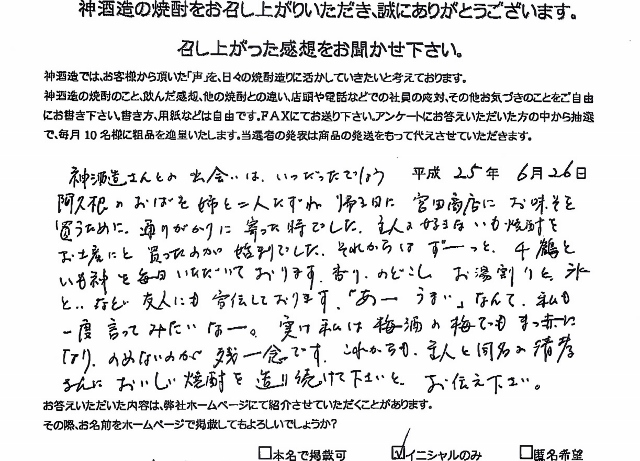 神酒造の焼酎をお召し上がりいただき、誠にありがとうございます。
召し上がった感想をお聞かせ下さい。
神酒造では、お客様から頂いた「声」を、日々の焼酎造りに活かしていきたいと考えております。
神酒造の焼酎のこと、飲んだ感想、他の焼酎との違い、店頭や電話などでの社員の応対、その他お気づきのことをご自由
にお書き下さい。書き方、用紙などは自由です。FAXにてお送り下さい。アンケートにお答えいただいた方の中から抽選
で、毎月10名様に粗品を進呈いたします。当選者の発表は商品の発送をもって代えさせていただきます。
神酒造さんとの出会いは、いつだったでしょう 平成25年6月26日
阿久根のおばを姉と二人たずね 帰る日に 宮田商店に お味そを
買うために、通りがかりに 寄った時でした。主人の好きな いも焼酎を
お土産にと 買ったのが 始まりでした。それからは ずーっと、千鶴と
いも神を毎日いただいております。香り、のどごし お湯割りと、氷
と.. など 友人にも 宣伝しております。「あー うまい」なんて、私も
一度 言ってみたいなー。実は私は 梅酒の梅でも まっ赤に
なり、のめないのが 残念です。これからも、主人と同名の 清孝
さんに おいしい 焼酎を 造り続けて下いと お伝え下さい。
お答えいただいた内容は、弊社ホームページにて紹介させていただくことがあります。
その際、お名前をホームページで掲載してもよろしいでしょうか？
□本名で掲載可 ☑イニシャルのみ □匿名希望